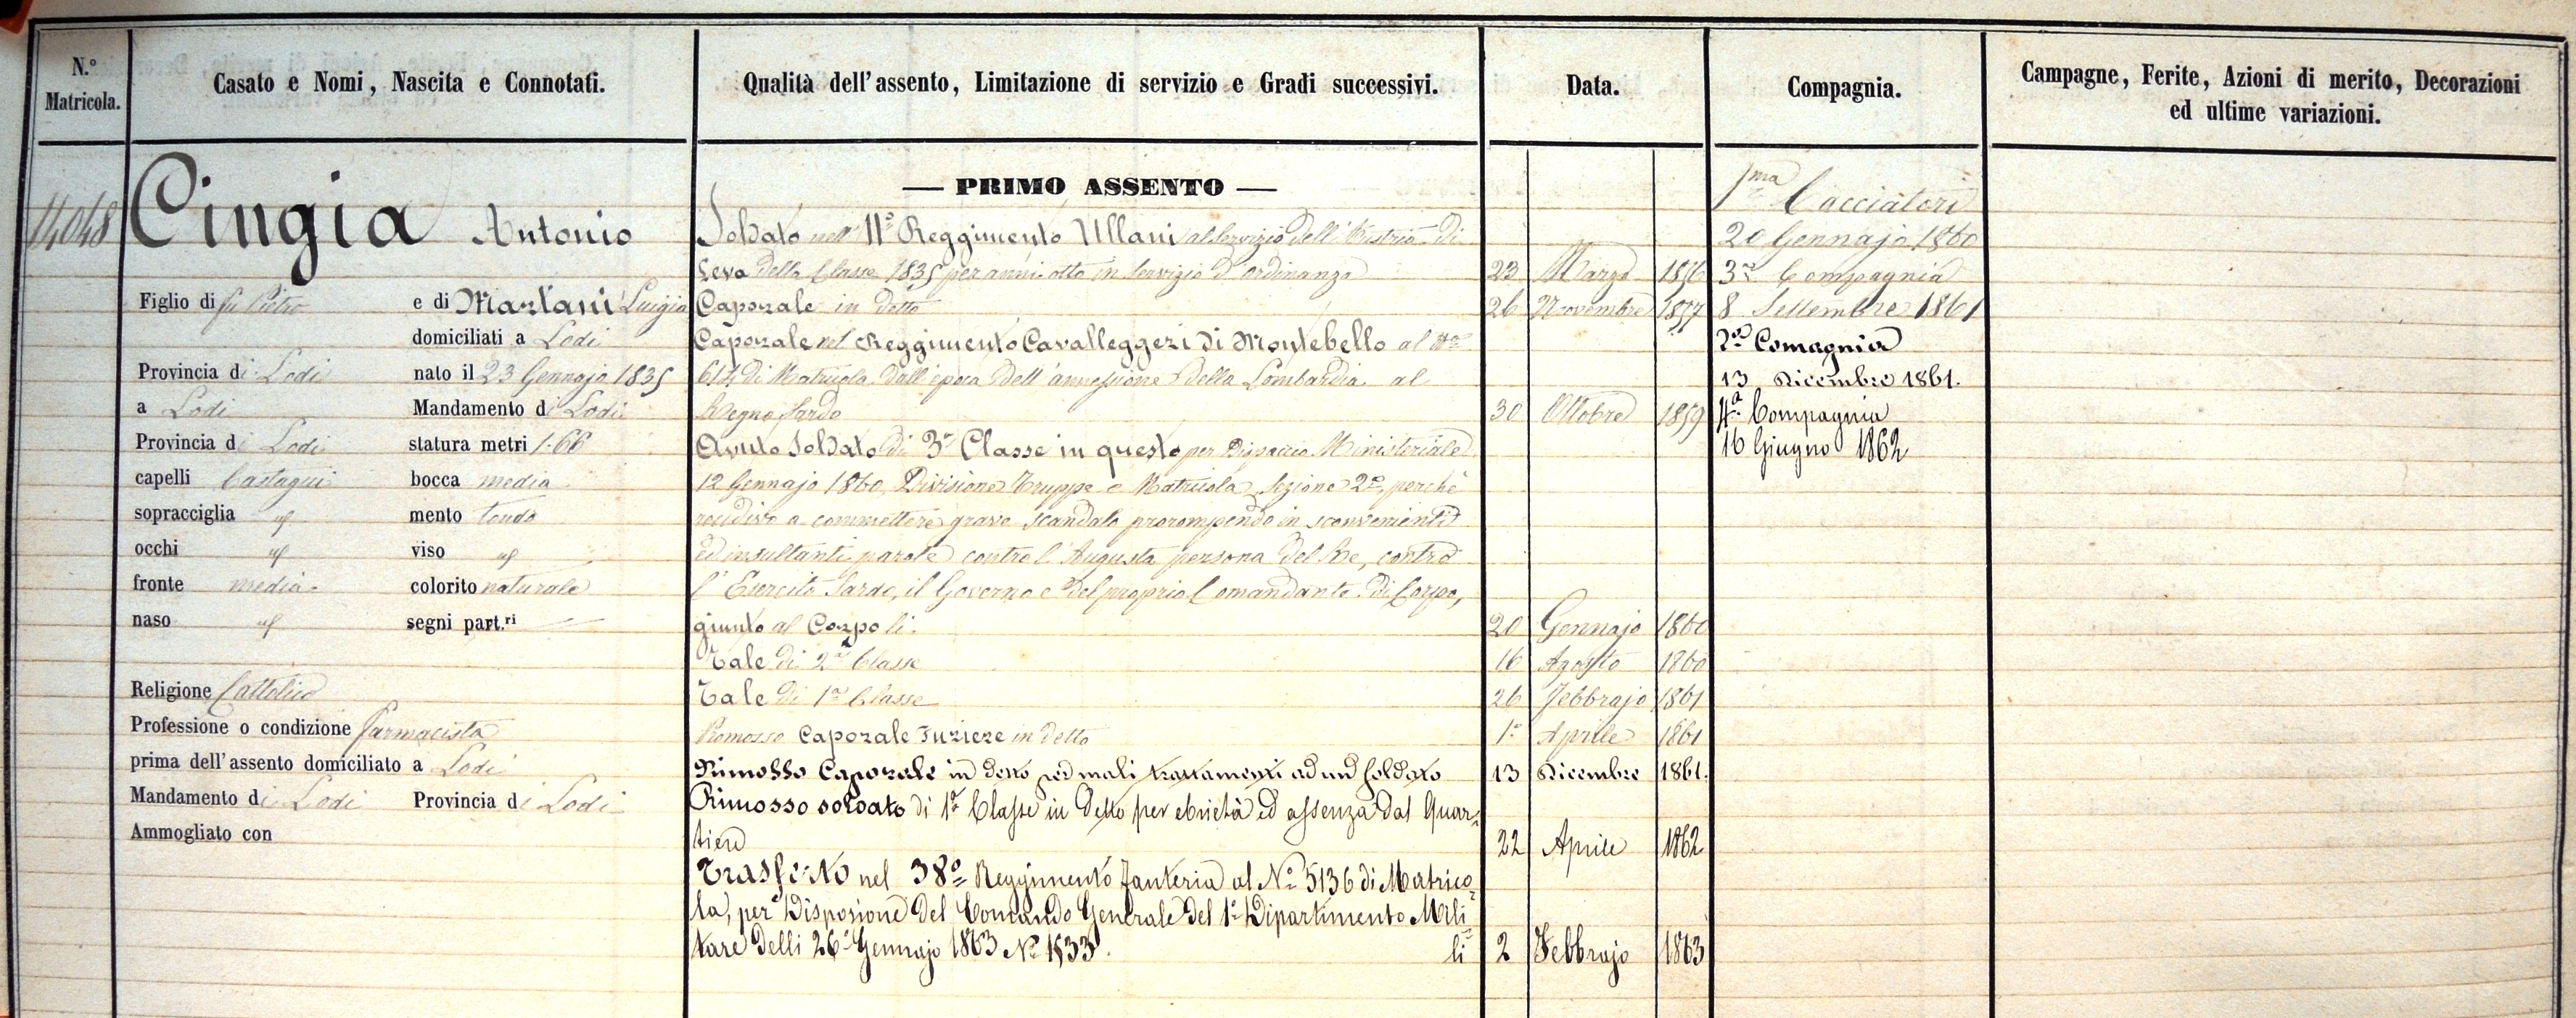 N.º Matricola.
Casato e Nomi, Nascita e Connotati.
Qualità dell'assento, Limitazione di servizio e Gradi successivi.
Data.
Compagnia.
Campagne, Ferite, Azioni di merito, Decorazioni
ed ultime variazioni.
14048
Cingia Antonio
Figlio di fu Pietro e di Martani Luigia
domiciliati a Lodi
Provincia di Lodi nato il 23 Gennajo 1835
a Lodi Mandamento di Lodi
Provincia di Lodi statura metri 1.66
capelli Castagni bocca media
sopracciglia id mento tondo
occhi id viso id
fronte media colorito naturale
naso id segni part.ri —
Religione Cattolica
Professione o condizione farmacista
prima dell'assento domiciliato a Lodi
Mandamento di Lodi Provincia di Lodi
Ammogliato con
— PRIMO ASSENTO —
Soldato nell' 11º Reggimento Ullani al servizio dell'Austria di
Leva della Classe 1835 per anni otto in servizio d'ordinanza 23 Marzo 1856
Caporale in detto 26 Novembre 1857
Caporale nel Reggimento Cavalleggeri di Montebello al Nº
614 di Matricola dall'epoca dell'annessione della Lombardia al
Regno Sardo 30 Ottobre 1859
Avuto Soldato di 3ª Classe in questo per Dispaccio Ministeriale
12 Gennajo 1860, Divisione Truppe e Matricola, Sezione 2ª, perchè
recidivo a commettere grave scandalo prorompendo in sconvenienti
ed insultanti parole contro l'Augusta persona del Re, contro
l'Esercito Sardo, il Governo e del proprio Comandante di Corpo,
giunto al Corpo li 20 Gennajo 1860
Tale di 2ª Classe 16 Agosto 1860
Tale di 1ª Classe 26 Febbrajo 1861
Promosso Caporale Furiere in detto 1º Aprile 1861
Rimosso Caporale in detto per mali trattamenti ad un soldato 13 Dicembre 1861.
Rimosso soldato di 1ª Classe in detto per ebrietà ed assenza dal Quar-
tiere 22 Aprile 1862
Trasferto nel 38º Reggimento Fanteria al Nº 5136 di Matrico-
la, per Disposione del Comando Generale del 1º Dipartimento Mili-
tare delli 26 Gennajo 1863 Nº 1533. li 2 Febbrajo 1863
1ma Cacciatori
20 Gennajo 1860
3ª Compagnia
8 Settembre 1861
2ª Comagnia
13 Dicembre 1861.
4ª Compagnia
16 Giugno 1862